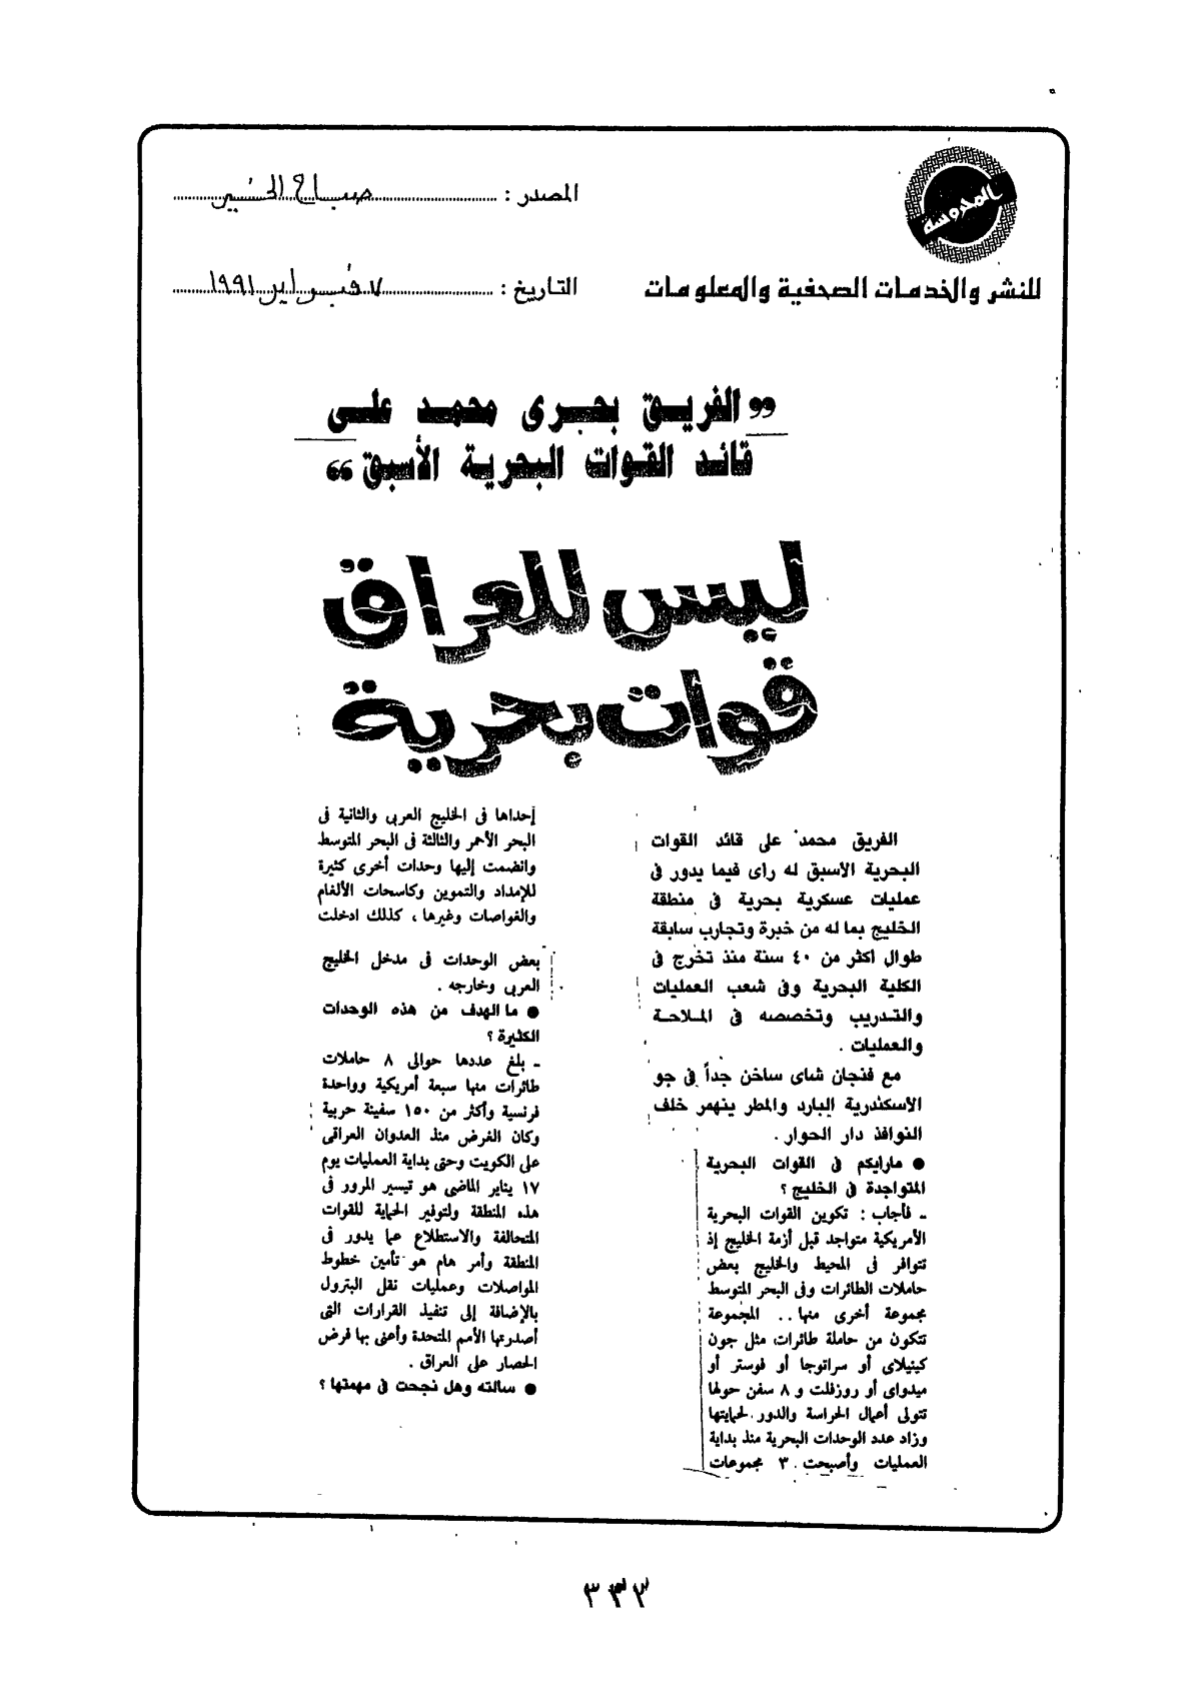 المحروسة
للنشر والخدمات الصحفية والمعلومات
المصدر : صباح الخير
التاريخ : ٧ فبراير ١٩٩١
" الفريق بحرى محمد على
قائد القوات البحرية الأسبق "
ليس للعراق
قوات بحرية
الفريق محمد على قائد القوات
البحرية الأسبق له راى فيما يدور فى
عمليات عسكرية بحرية فى منطقة
الخليج بما له من خبرة وتجارب سابقة
طوال اكثر من ٤٠ سنة منذ تخرج فى
الكلية البحرية وفى شعب العمليات
والتدريب وتخصصه فى الملاحة
والعمليات .
مع فنجان شاى ساخن جداً فى جو
الأسكندرية البارد والمطر ينهمر خلف
النوافذ دار الحوار .
● مارايكم فى القوات البحرية
المتواجدة فى الخليج ؟
ـ فأجاب : تكوين القوات البحرية
الأمريكية متواجد قبل أزمة الخليج إذ
تتوافر فى المحيط والخليج بعض
حاملات الطائرات وفى البحر المتوسط
مجموعة أخرى منها .. المجموعة
تتكون من حاملة طائرات مثل جون
كينيلاى أو سراتوجا أو فوستر أو
ميدواى أو روزفلت و ٨ سفن حولها
تتولى أعمال الحراسة والدور لحمايتها
وزاد عدد الوحدات البحرية منذ بداية
العمليات وأصبحت ٣ مجموعات
إحداها فى الخليج العربى والثانية فى
البحر الأحمر والثالثة فى البحر المتوسط
وانضمت إليها وحدات أخرى كثيرة
للإمداد والتموين وكاسحات الألغام
والغواصات وغيرها ، كذلك ادخلت
بعض الوحدات فى مدخل الخليج
العربى وخارجه .
● ما الهدف من هذه الوحدات
الكثيرة ؟
ـ بلغ عددها حوالى ٨ حاملات
طائرات منها سبعة أمريكية وواحدة
فرنسية وأكثر من ١٥٠ سفينة حربية
وكان الغرض منذ العدوان العراقى
على الكويت وحتى بداية العمليات يوم
١٧ يناير الماضى هو تيسير المرور فى
هذه المنطقة ولتوفير الحماية للقوات
المتحالفة والاستطلاع عما يدور فى
المنطقة وأمر هام هو تأمين خطوط
المواصلات وعمليات نقل البترول
بالإضافة إلى تنفيذ القرارات التى
أصدرتها الأمم المتحدة وأعنى بها فرض
الحصار على العراق .
● سالته وهل نجحت فى مهمتها ؟
٣٣٣